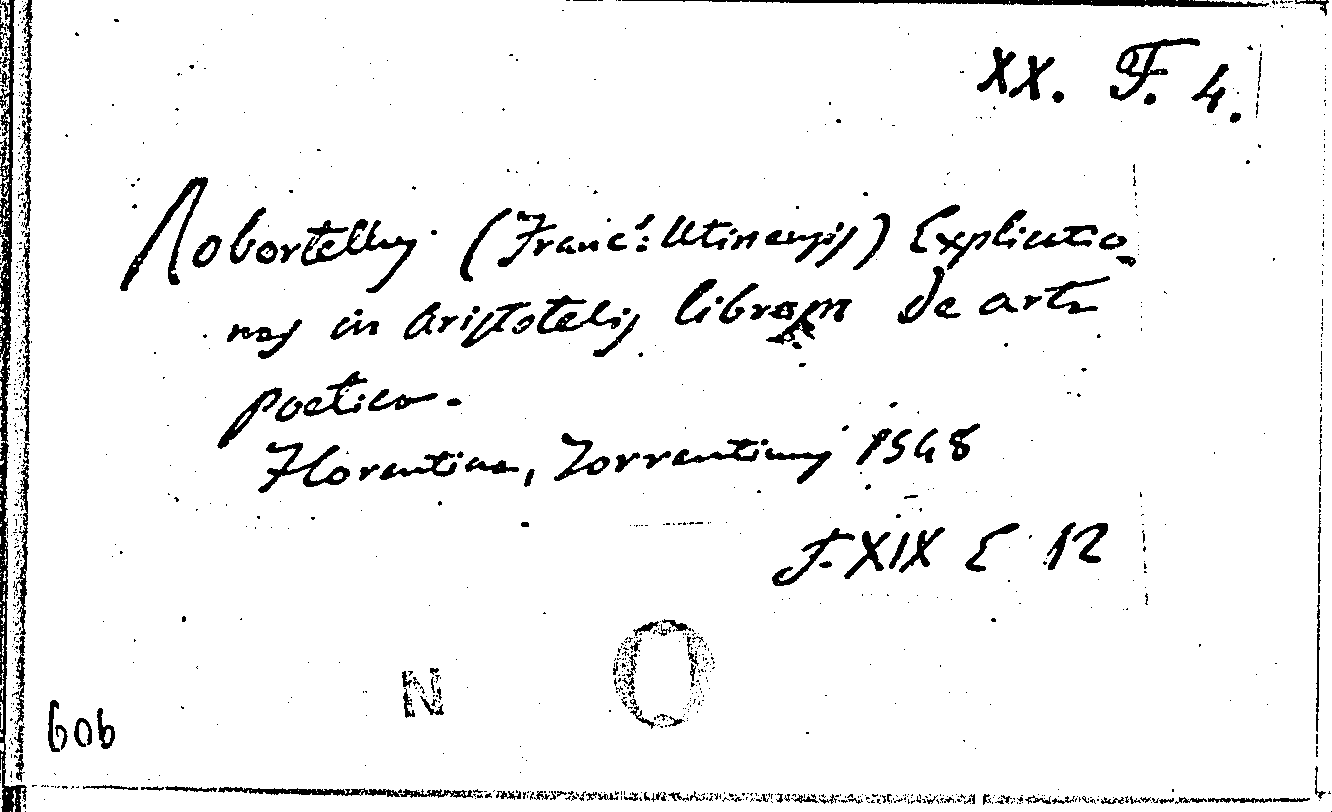 XX. F. 4.
Robortellus (Franc: Utinensis) Explicatio
nes in Aristotelis librum de arte
poetica.
Florentiae, Torrentinus 1548
F. XIX E 12
N
606